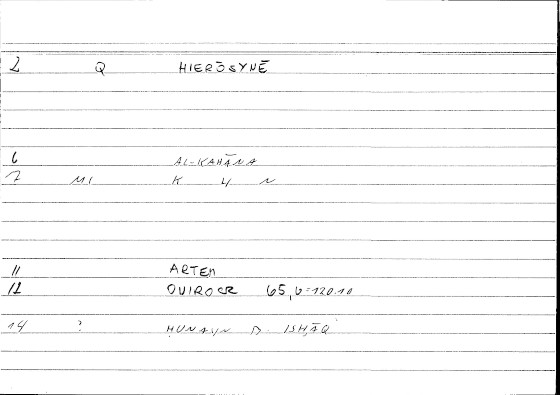 2 Q HIERŌSYNĒ
6 AL-KAHĀNA
7 MI K 4 N
11 ARTEM
12 65,6=120.10
14 ? ḤUNAYN B. ISḤĀQ